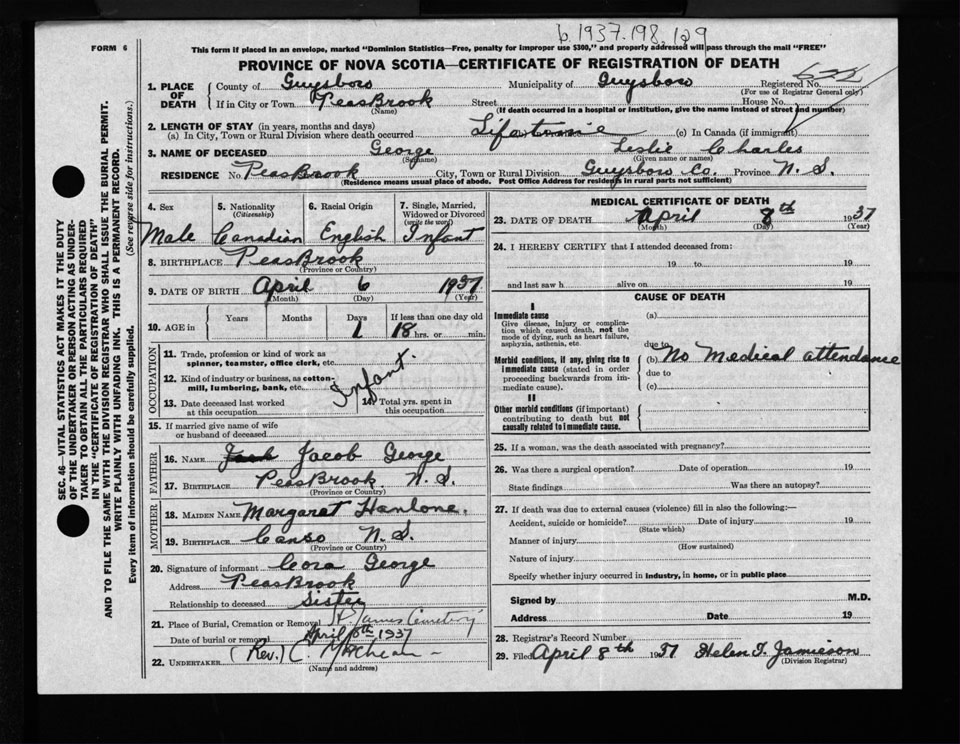 6.1937.198,109
FORM 6
This form if placed in an envelope, marked "Dominion Statistics—Free, penalty for improper use $300," and properly addressed will pass through the mail "FREE"
PROVINCE OF NOVA SCOTIA—CERTIFICATE OF REGISTRATION OF DEATH
SEC. 46—VITAL STATISTICS ACT MAKES IT THE DUTY
OF THE UNDERTAKER OR PERSON ACTING AS UNDER-
TAKER TO OBTAIN ALL THE PARTICULARS REQUIRED
IN THE "CERTIFICATE OF REGISTRATION OF DEATH"
AND TO FILE THE SAME WITH THE DIVISION REGISTRAR WHO SHALL ISSUE THE BURIAL PERMIT.
WRITE PLAINLY WITH UNFADING INK. THIS IS A PERMANENT RECORD.
Every item of information should be carefully supplied. (See reverse side for instructions.)
1. PLACE OF DEATH
County of Guysboro Municipality of Guysboro Registered No.
(For use of Registrar General only)
If in City or Town PeasBrook Street House No.
(Name) (If death occurred in a hospital or institution, give the name instead of street and number)
2. LENGTH OF STAY (in years, months and days)
(a) In City, Town or Rural Division where death occurred Lifetime (c) In Canada (if immigrant)
3. NAME OF DECEASED George Leslie Charles
(Surname) (Given name or names)
RESIDENCE No. PeasBrook City, Town or Rural Division Guysboro Co. Province N. S.
(Residence means usual place of abode. Post Office Address for residents in rural parts not sufficient)
4. Sex 5. Nationality (Citizenship) 6. Racial Origin 7. Single, Married, Widowed or Divorced (write the word)
Male Canadian English Infant
8. BIRTHPLACE PeasBrook
(Province or Country)
9. DATE OF BIRTH April 6 1937
(Month) (Day) (Year)
10. AGE in Years Months Days If less than one day old
1 18 hrs. or min.
OCCUPATION
11. Trade, profession or kind of work as spinner, teamster, office clerk, etc.
12. Kind of industry or business, as cotton-mill, lumbering, bank, etc. Infant.
13. Date deceased last worked at this occupation 14. Total yrs. spent in this occupation
15. If married give name of wife or husband of deceased
FATHER
16. NAME Jacob George
17. BIRTHPLACE PeasBrook N. S.
(Province or Country)
MOTHER
18. MAIDEN NAME Margaret Hanlone.
19. BIRTHPLACE Canso N. S.
(Province or Country)
20. Signature of informant Cora George
Address PeasBrook
Relationship to deceased Sister
21. Place of Burial, Cremation or Removal St James Cemetery
Date of burial or removal April 1937
22. UNDERTAKER (Rev.) C.
(Name and address)
MEDICAL CERTIFICATE OF DEATH
23. DATE OF DEATH April 8th 1937
(Month) (Day) (Year)
24. I HEREBY CERTIFY that I attended deceased from:
19 to 19
and last saw h alive on 19
CAUSE OF DEATH
I
Immediate cause (a)
Give disease, injury or complication which caused death, not the mode of dying, such as heart failure, asphyxia, asthenia, etc.
due to
Morbid conditions, if any, giving rise to immediate cause (stated in order proceeding backwards from immediate cause).
(b) No Medical attendance
due to
(c)
II
Other morbid conditions (if important) contributing to death but not causally related to immediate cause.
25. If a woman, was the death associated with pregnancy?
26. Was there a surgical operation? Date of operation 19
State findings Was there an autopsy?
27. If death was due to external causes (violence) fill in also the following:—
Accident, suicide or homicide? Date of injury 19
(State which)
Manner of injury
(How sustained)
Nature of injury
Specify whether injury occurred in industry, in home, or in public place
Signed by M.D.
Address Date 19
28. Registrar's Record Number
29. Filed April 8th 1937 Helen T. Jamieson
(Division Registrar)